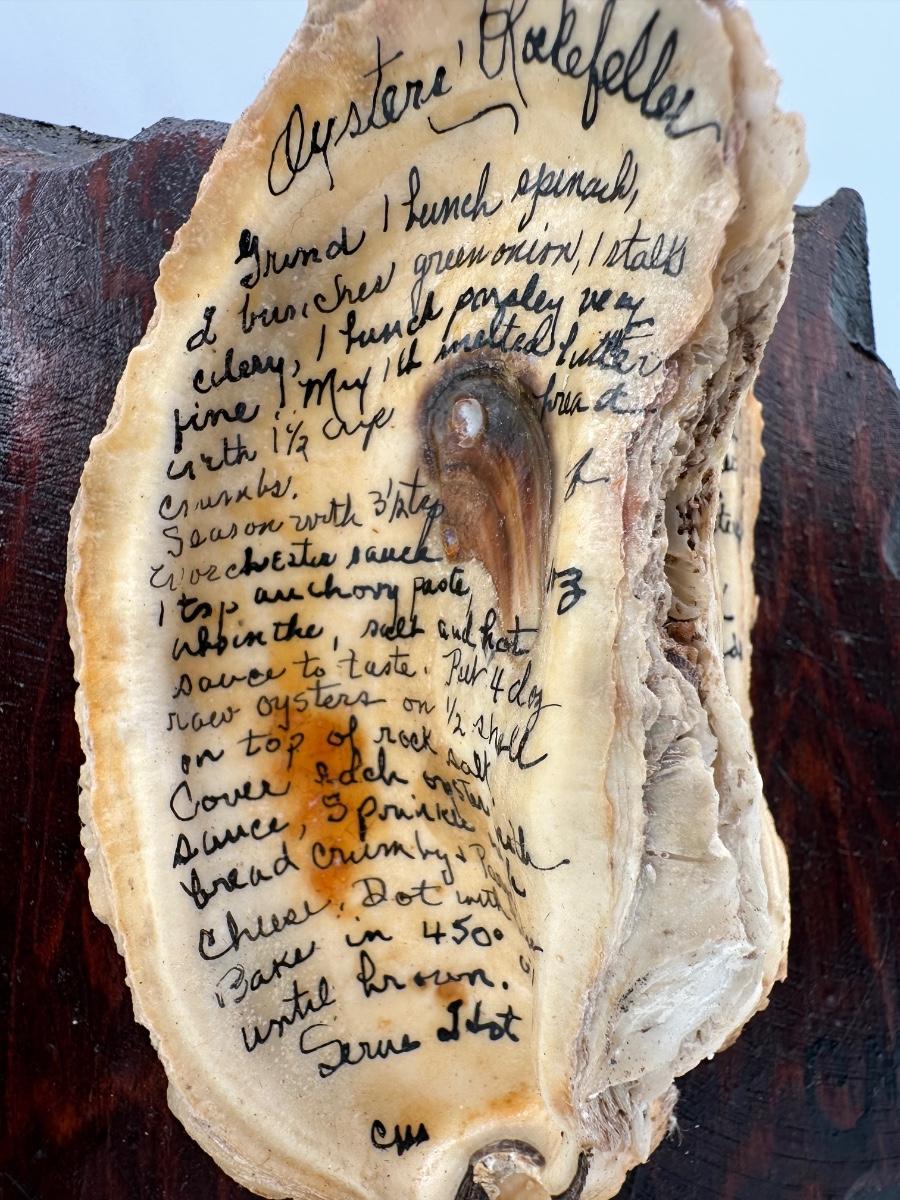 Oysters' Rockefeller
Grind 1 bunch spinach,
2 bunches green onion, 1 stalk
celery, 1 bunch parsley very
fine. Mix 1 lb melted butter
with 1½ cups bread
crumbs.
Season with 3½ tsp
Worchester sauce
1 tsp anchovy paste,
absinthe, salt and hot
sauce to taste. Put 4 doz
raw oysters on ½ shell
on top of rock salt
Cover each oyster with
sauce, Sprinkle
bread crumbs +
cheese. Dot with
Bake in 450°
until brown.
Serve Hot